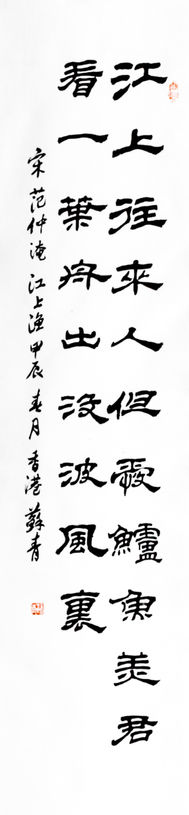 江上往來人但愛鱸魚羙君
看一葉舟出没波風裏
宋范仲淹江上漁甲辰春月香港蘇青